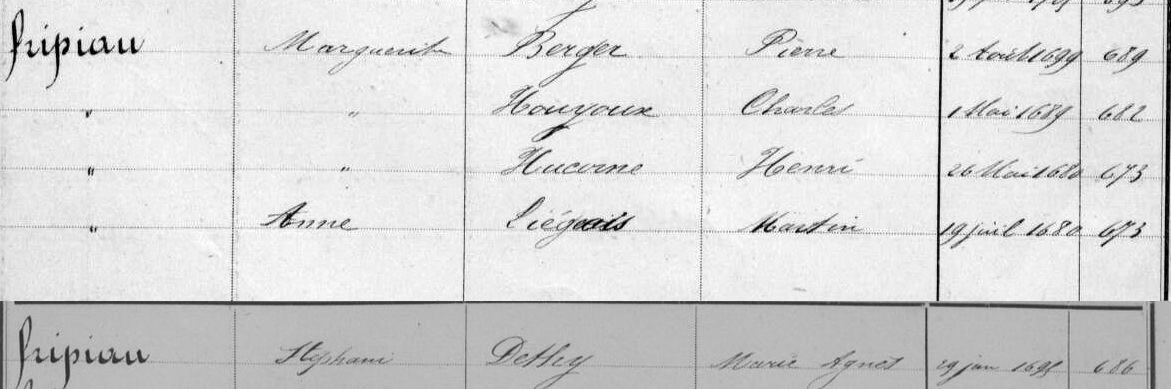 fripiau Marguerite Berger Pierre 2 Août 1699 689
" " Houyoux Charles 1 Mai 1689 682
" " Hucorne Henri 26 Mai 1680 673
" Anne Liégeois Martin 19 juil 1680 673
fripiau Stephani Dethy Marie Agnes 29 jan 686